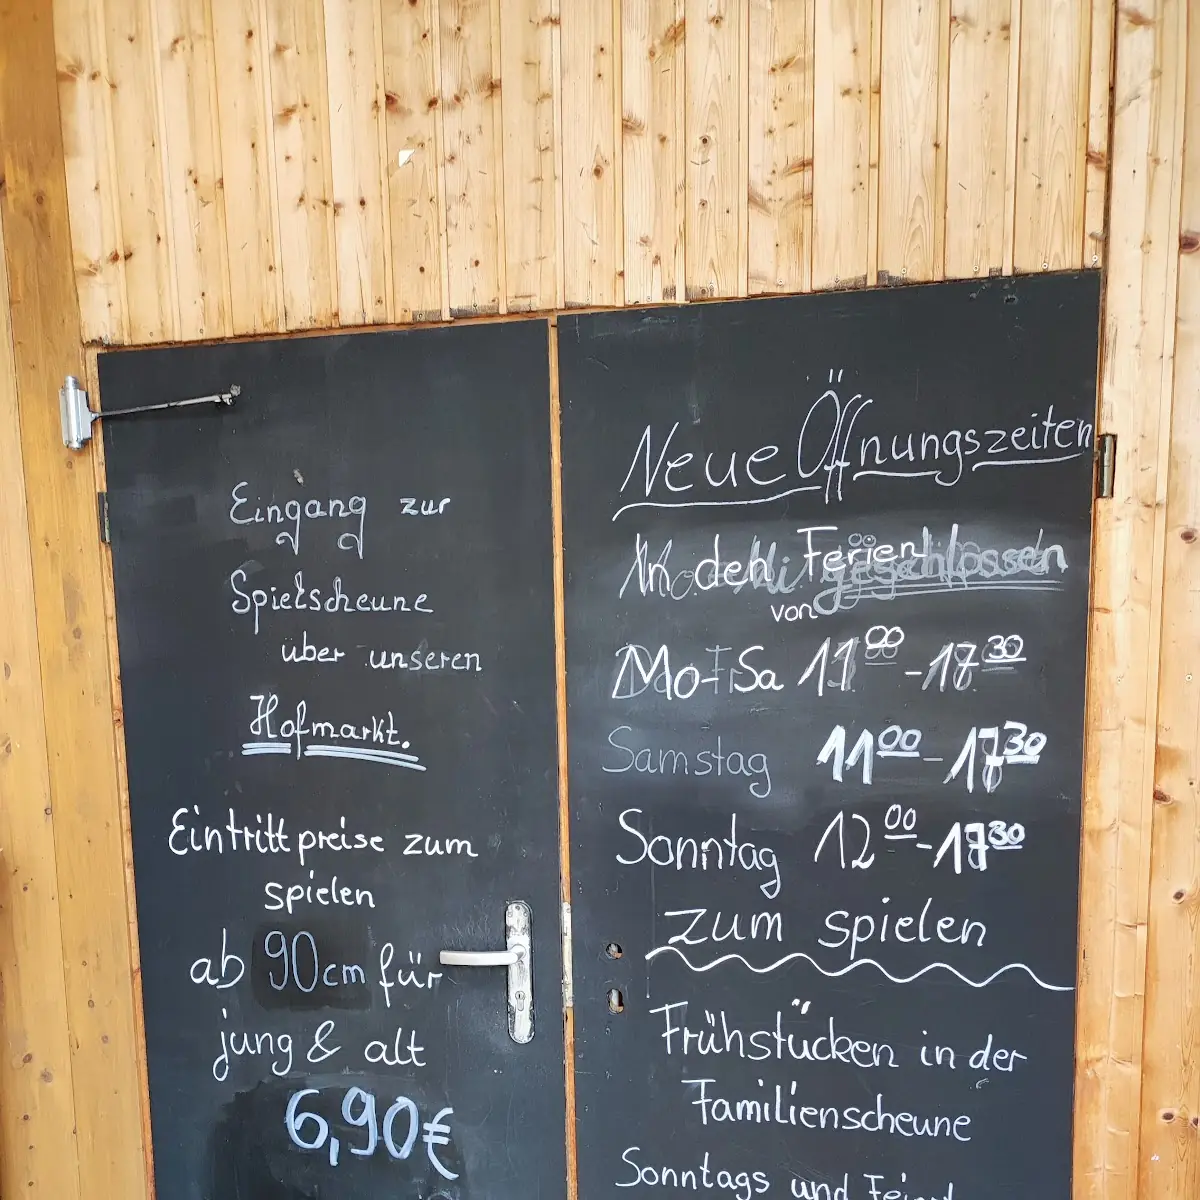 Eingang zur
Spielscheune
über unseren
Hofmarkt.
Eintrittpreise zum
spielen
ab 90cm für
jung & alt
6,90€
Neue Öffnungszeiten
In den Ferien geschlossen
von
Mo-Sa 11⁰⁰-17³⁰
Samstag 11⁰⁰-17³⁰
Sonntag 12⁰⁰-17³⁰
zum spielen
Frühstücken in der
Familienscheune
Sonntags und